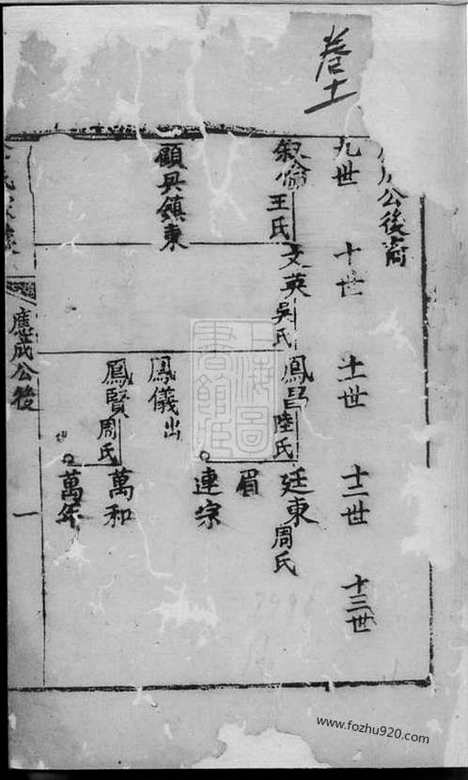 卷十一
公後裔
九世
十世
十一世
十二世
十三世
叙倫
王氏
文英
吳氏
鳳昌
陸氏
廷東
周氏
眉
連宗
顧興鎮東
鳳儀出
鳳賢
周氏
萬和
萬年
應成公後
一
www.fozhu920.com